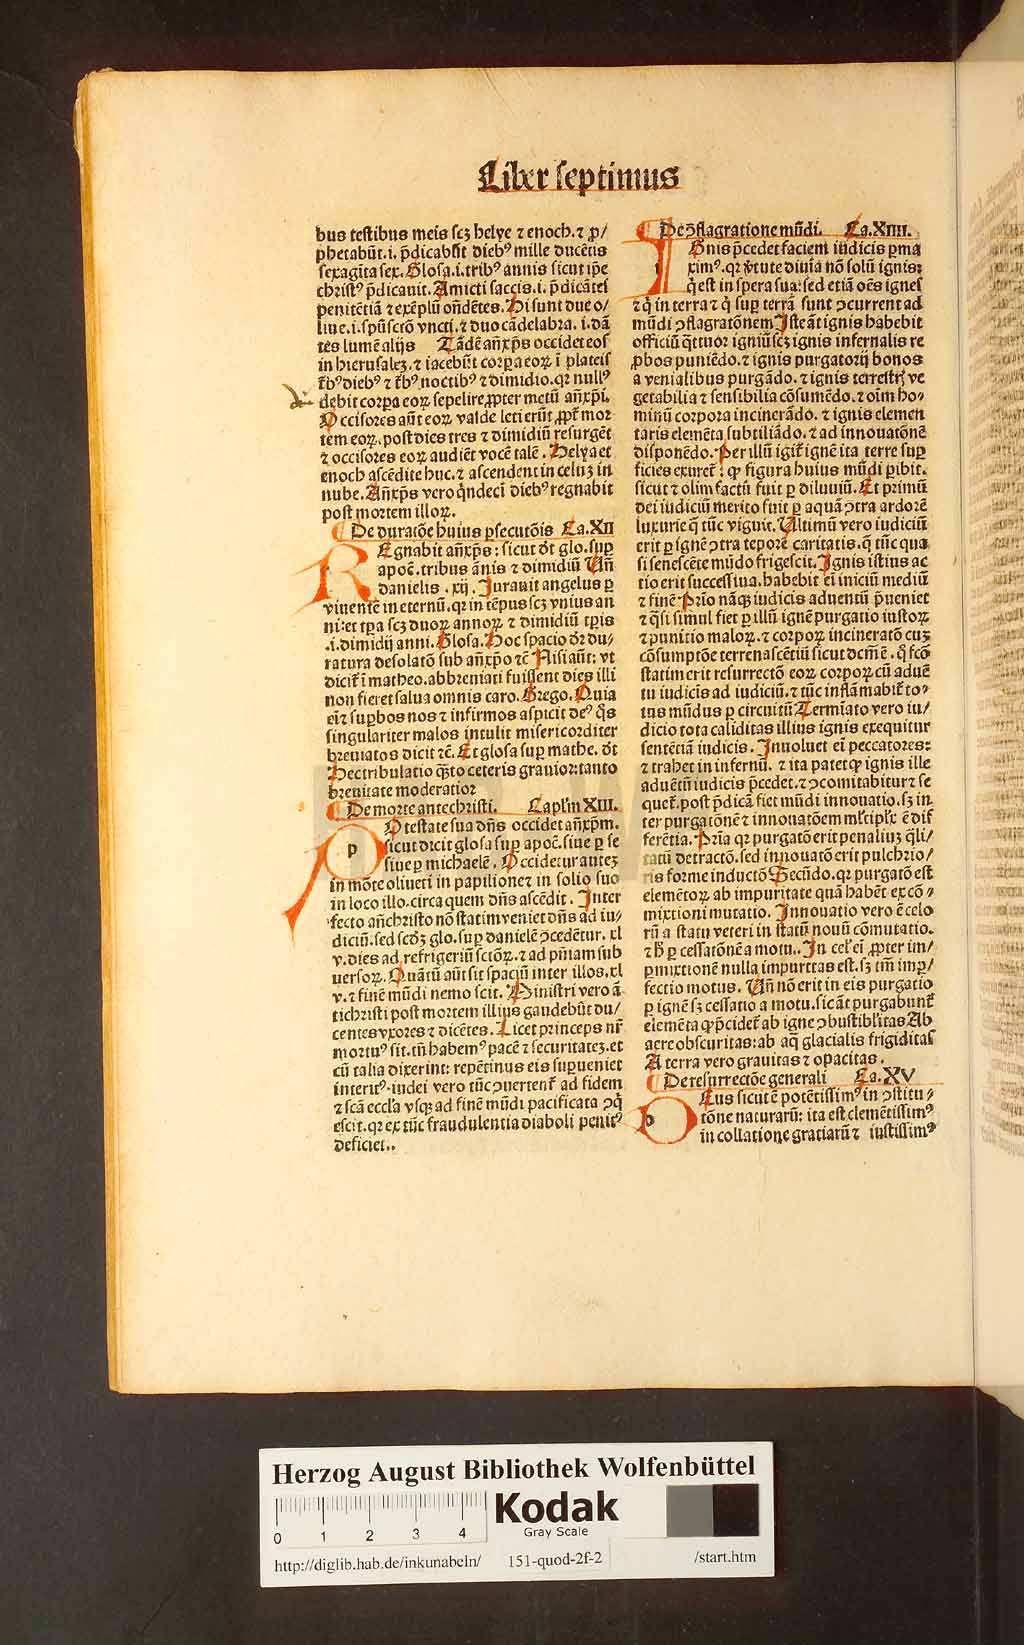 Liber septimus
bus testibus meis scꝫ helye ⁊ enoch. ⁊ ꝓ/
phetabūt. i. p̄dicabūt diebꝰ mille ducētis
sexagīta sex. Glosa. i. tribꝰ annis sicut ip̄e
christꝰ p̄dicauit. Amicti saccis. i. p̄dicātes
penitētiā ⁊ exēplū oñdētes. Hi sunt due o/
liue. i. spūsctō vncti. ⁊ duo cādelabra. i. dā
tes lumē alijs Tādē añxp̄s occidet eos
in hierusalez. ⁊ iacebūt corꝑa eoꝝ ī plateis
tͥbꝰ diebꝰ ⁊ tͥbꝰ noctibꝰ ⁊ dimidio. qꝛ nullꝰ
debit corꝑa eoꝝ sepelire ꝓpter metū añxp̄i.
Occisores aūt eoꝝ valde leti erūt ꝓpt̄ mor
tem eoꝝ. post dies tres ⁊ dimidiū resurgēt
⁊ occisores eoꝝ audiēt vocē talē. Helya et
enoch ascēdite huc. ⁊ ascendent in celuꝫ in
nube. Añxp̄s vero q̄ndeci diebꝰ regnabit
post mortem illoꝝ.
¶ De duratōe huius ꝑsecutōis Ca. XII
REgnabit añxp̄s: sicut dt̄ glo. suꝑ
apoc̄. tribus ānis ⁊ dimidiū Vñ
danielis. xij. Jurauit angelus ꝑ
viuentē in eternū. qꝛ in tēpus scꝫ vnius an
ni: et tꝑa scꝫ duoꝝ annoꝝ ⁊ dimidiū tꝑis
.i. dimidij anni. Glosa. Hoc spacio dꝛ du/
ratura desolatō sub añxp̄o ⁊c̄ Nisi aūt: vt
dicit̄ ī matheo. abbreuiati fuissent dies illi
non fieret salua omnis caro. Grego. Quia
ei ⁊ suꝑbos nos ⁊ infirmos aspicit deꝰ q̄s
singulariter malos intulit misericorditer
breuiatos dicit ⁊c̄. Et glosa suꝑ mathe. dt̄
Hec tribulatio q̄sto ceteris grauior: tanto
breuitate moderatior
¶ De morte antechristi. Capl'm XIII.
POtestate sua dn̄s occidet añxp̄m.
sicut dicit glosa suꝑ apoc̄. siue ꝑ se
siue ꝑ michaelē. Occidetur auteꝫ
in mōte oliueti in papilione ⁊ in solio suo
in loco illo. circa quem dn̄s ascēdit. Inter
fecto añchristo nō statim veniet dn̄s ad iu/
diciū. sed scd'ꝫ glo. suꝑ danielē ↄcedētur. xl
v. dies ad refrigeriū sctōꝝ. ⁊ ad pn̄iam sub
uersoꝝ. Quātū aūt sit spaciū inter illos. xl
v. ⁊ finē mūdi nemo scit. Ministri vero ā
tichristi post mortem illius gaudebūt du/
centes vxores ⁊ dicētes. Licet princeps nr̄
mortuꝰ sit. tn̄ habemꝰ pacē ⁊ securitateꝫ. et
cū talia dixerint: repētinus eis suꝑueniet
interitꝰ. iudei vero tūc ↄuertent̄ ad fidem
⁊ scā eccl'a vsqꝫ ad finē mūdi pacificata ↄq̄
escit. qꝛ ex tūc fraudulentia diaboli penitꝰ
deficiet..
¶ De ↄflagratione mūdi. Ca. XIIII.
IGnis p̄cedet faciem iudicis ꝓma
ximꝰ. qꝛ v̄tute diuīa nō solū ignis:
q̄ est in spera sua: sed etiā oēs ignes
⁊ q̄ in terra ⁊ q̄ suꝑ terrā sunt ↄcurrent ad
mūdi ↄflagratōnem Iste āt ignis habebit
officiū q̄ttuor igniū scꝫ ignis infernalis re
ꝓbos puniēdo. ⁊ ignis purgatorij bonos
a venialibus purgādo. ⁊ ignis terrestrꝭ ve
getabilia ⁊ sensibilia cōsumēdo. ⁊ oīm ho-
minū corpora incinerādo. ⁊ ignis elemen
taris elemēta subtiliādo. ⁊ ad innouatōnē
disponēdo. Per illū igit̄ ignē ita terre suꝑ
ficies exuret̄: ꝙ figura huius mūdi ꝑibit.
sicut ⁊ olim factū fuit ꝑ diluuiū. Et primū
dei iudiciū merito fuit ꝑ aquā ↄtra ardorē
luxurie q̄ tūc viguit. Ultimū vero iudiciū
erit ꝑ ignē ↄtra teporē caritatis. q̄ tūc qua
si senescēte mūdo frigescit. Ignis istius ac
tio erit successiua. habebit ei iniciū mediū
⁊ finē Prīo nāqꝫ iudicis aduentū p̄ueniet
⁊ q̄si simul fiet ꝑ illū ignē purgatio iustoꝝ
⁊ punitio maloꝝ. ⁊ corpoꝝ incineratō cuꝫ
cōsumptōe terrenascētiū sicut dcm̄ ē. q̄ fcō
statim erit resurrectō eoꝝ corpoꝝ cū aduē
tu iudicis ad iudiciū. ⁊ tūc inflāmabit̄ to-
tus mūdus ꝑ circuitū Termīato vero iu/
dicio tota caliditas illius ignis exequitur
sentētiā iudicis. Inuoluet ei peccatores:
⁊ trahet in infernū. ⁊ ita patet ꝙ ignis ille
aduētū iudicis p̄cedet. ⁊ ↄcomitabitur ⁊ se
quet̄. post p̄dicā fiet mūdi innouatio. sꝫ in
ter purgatōnē ⁊ innouatōem ml'tipl'r ē dif
ferētia. Prīa qꝛ purgatō erit penaliuꝫ q̄li/
tatū detractō. sed innouatō erit pulchrio/
ris forme inductō Secūdo. qꝛ purgatō est
elemētoꝝ ab impuritate quā habēt ex cō-
mixtioni mutatio. Innouatio vero ē celo
rū a statu veteri in statū nouū cōmutatio.
⁊ h̄ ꝑ cessatōnē a motu. . In cel' ei ꝓpter im/
ꝑmixtionē nulla impuritas est. sꝫ tm̄ imꝑ/
fectio motus. Vñ nō erit in eis purgatio
ꝑ ignē sꝫ cessatio a motu. sic āt purgabunt̄
elemēta ꝙ p̄cidet̄ ab igne ↄbustibl'itas Ab
aere obscuritas: ab aq̄ glacialis frigiditas
A terra vero grauitas ⁊ opacitas.
¶ De resurrectōe generali Ca. XV
DEus sicut ē potētissimꝰ in ↄstitu-
tōne naturarū: ita est clemētissimꝰ
in collatione gratiarū ⁊ iustissimꝰ
Herzog August Bibliothek Wolfenbüttel
0 1 2 3 4
Kodak
Gray Scale
http://diglib.hab.de/inkunabeln/ 151-quod-2f-2 /start.htm